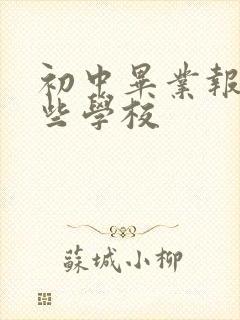 初中畢業報
些學校
蘇城小柳